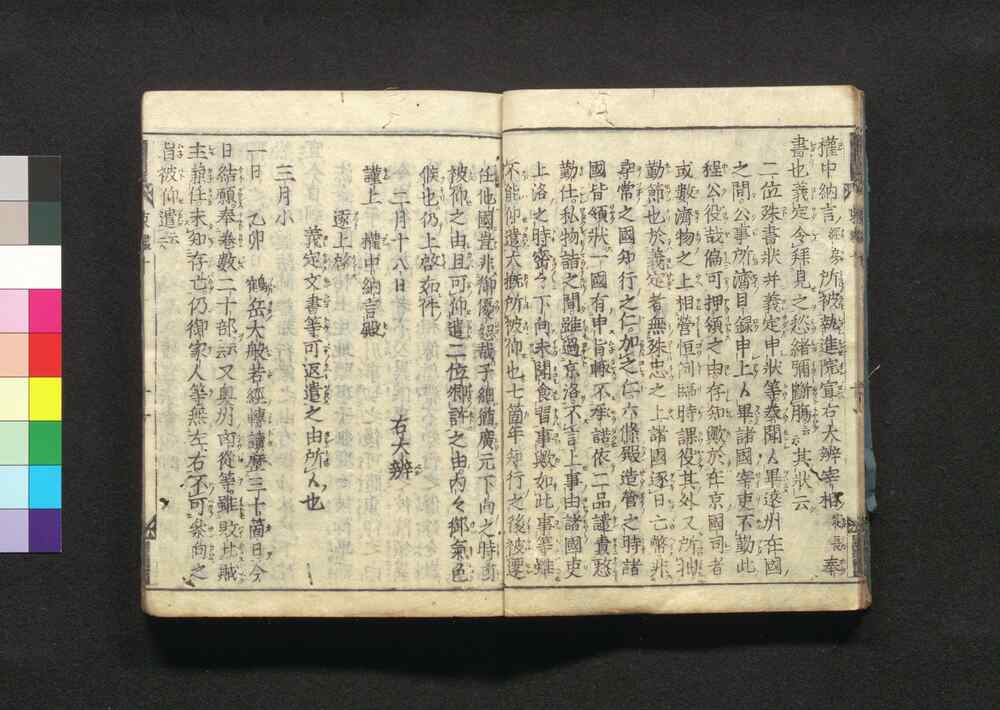 權中納言經房所被執進院宣右大辨宰相定長奉
書也義定今拜見之愁緒彌斷膓云云其狀云
二位殊書狀并義定申狀等奏聞候畢遠州在國
之間公事所濟目録申上候畢諸國宰吏不勤此
程公役哉偏可押領之由存知歟於在京國司者
或致濟物之上相營恒例臨時課役其外又所抽
勤節也於義定者無殊忠之上諸國逐日亡弊非
尋常之國知行之仁加之仁六條殿造營之時諸
國皆領狀一國有申旨轉不承諾依二品譴責愁
勤仕私物詣之間雖過京洛不言上事由諸國吏
上洛之時密密下向未聞食習事歟如此事等雖
不能仰遣大概所被仰也七箇年知行之後被遷
任他國豈非御優恕哉子細猶廣元下向之時可
被仰之由且可仰遣二位卿許之由內々御氣色
候也仍上啓如件
二月十八日 右大辨
謹上 權中納言殿
逐上啓
義定文書等可返遣之由所候也
三月小
一日 乙卯 鶴岳大般若經轉讀歷三十箇日今
日結願奉卷數二十部云云又奧州南從等雖敗北賊
主兼任未知存亡仍御家人等無左右不可參向之
旨被仰遣云云